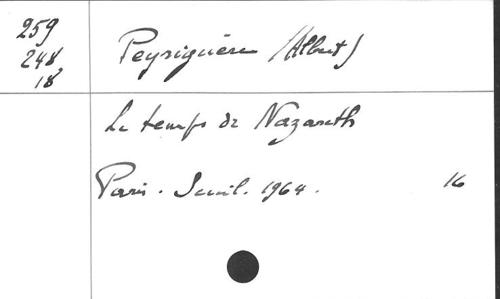 259
248
18
Peyriguère (Albert)
Le temps de Nazareth
Paris. Seuil. 1964.
16